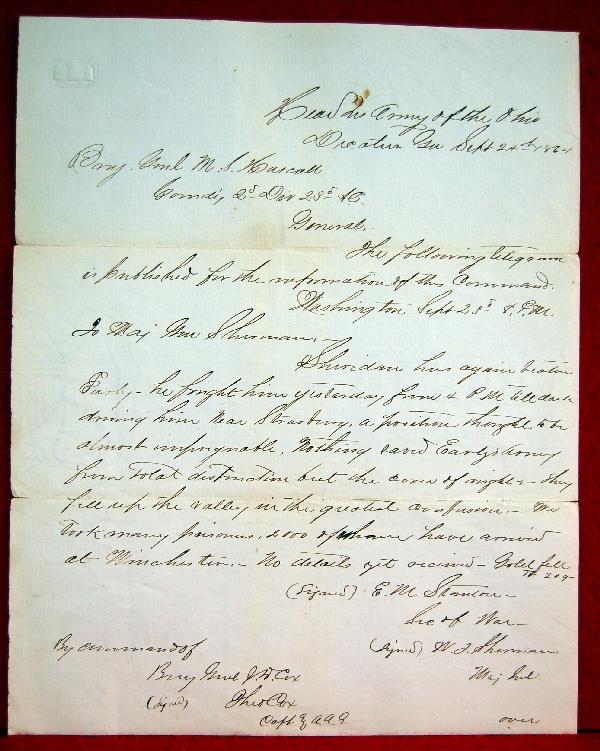 Head Qrs Army of the Ohio
Decatur Ga Sept 24th 1864
Brig. Genl M. S. Hascall
Comdg 2d Div 23d A.C.
General,
The following telegram
is published for the information of this Command.
Washington Sept 23d 8 P.M.
To Maj Genl Sherman,
Sheridan has again beaten
Early, - he fought him yesterday from 4 P.M. till dark
driving him near Strasburg, a position thought to be
almost impregnable. Nothing saved Earlys Army
from total distruction but the cover of night - they
fell up the valley in the greatest confusion - We
took many prisoners. 2000 of whom have arrived
at Winchester. - No details yet recieved - Gold fell
to 209-
(Signed) E. M. Stanton -
Sec of War -
By command of
(Signed) W. T. Sherman
Brig Genl J D Cox
Maj Genl
(Signed) Theo Cox
Capt & A.A.G.
over